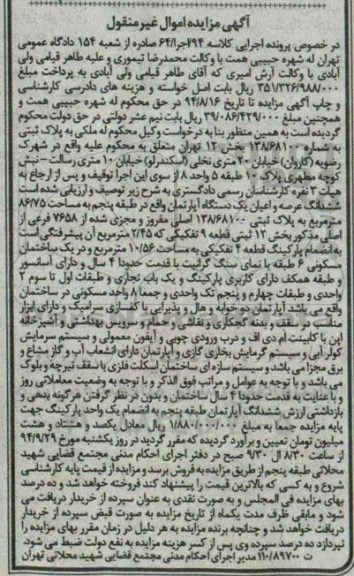 آگهی مزایده اموال غیر منقول
در خصوص پرونده اجرایی کلاسه ۲۹۴اجرا/۶۴ صادره از شعبه ۱۵۴ دادگاه عمومی
تهران له شهره حبیبی همت با وکالت محمدرضا تیموری و علیه طاهر قیامی ولی
آبادی با وکالت آرش امیری که آقای طاهر قیامی ولی آبادی به پرداخت مبلغ
۳۵۱/۳۲۶/۹۸۸/۰۰۰ ریال بابت اصل خواسته و هزینه های دادرسی کارشناسی
و چاپ آگهی مزایده تا تاریخ ۹۴/۸/۱۶ در حق محکوم له شهره حبیبی همت و
همچنین مبلغ ۳۹/۰۸۶/۴۲۹/۰۰۰ ریال بابت نیم عشر دولتی در حق دولت محکوم
گردیده است به همین منظور بنا به درخواست وکیل محکوم له ملکی به پلاک ثبتی
به شماره ۱۳۸/۶۸۱۰۰ بخش ۱۲ تهران متعلق به محکوم علیه واقع در شهرک
رضویه (کاروان) خیابان ۳۰ متری نخلی (اسکندرلو) خیابان ۱۰ متری رسالت - نبش
کوچه مطهری پلاک ۱۰ طبقه ۵ واحد ۸ از سوی این اجرا توقیف و پس از ارجاع به
هیات ۳ نفره کارشناسان رسمی دادگستری به شرح زیر توصیف و ارزیابی شده است
ششدانگ عرصه و اعیان یک دستگاه آپارتمان واقع در طبقه پنجم به مساحت ۸۶/۷۵
مترمربع به پلاک ثبتی ۱۳۸/۶۸۱۰۰ اصلی مفروز و مجزی شده از ۷۶۵۸ فرعی از
اصلی مذکور بخش ۱۲ ثبتی قطعه ۹ تفکیکی که ۲/۴۵ مترمربع آن پیشرفتگی است
به انضمام پارکینگ قطعه ۴ تفکیکی به مساحت ۱۰/۵۶ مترمربع و در یک ساختمان
مسکونی ۶ طبقه با نمای سنگ گرانیت با قدمت حدودا ۴ سال و دارای آسانسور
و طبقه همکف دارای کاربری پارکینگ و یک باب تجاری و طبقات اول تا سوم ۲
واحدی و طبقات چهارم و پنجم تک واحدی و جمعا ۸ واحد مسکونی در ساختمان
واقع می باشد آپارتمان دو خوابه و هال و پذیرایی با کفسازی سرامیک و دارای ابزار
مناسب در سقف و بدنه گچکاری و نقاشی و حمام و سرویس بهداشتی و آشپزخانه
اپن با کابینت ام دی اف و درب ورودی چوبی و آیفون معمولی و سیستم سرمایش
کولر آبی و سیستم گرمایش بخاری گازی و آپارتمان دارای انشعاب آب و گاز مشاع و
برق مجزا می باشد و سیستم سازه ای ساختمان اسکلت فلزی با سقف تیرچه و بلوک
می باشد و با توجه به عوامل و مراتب فوق الذکر و با توجه به وضعیت معاملاتی روز
و با عنایت به قدمت حدودا ۴ سال ساختمان و بدون در نظر گرفتن هرگونه بدهی و
بازداشتی ارزش ششدانگ آپارتمان طبقه پنجم به انضمام یک واحد پارکینگ جهت
پایه مزایده جمعا به مبلغ ۱/۸۸۰/۰۰۰/۰۰۰ ریال معادل یکصد و هشتاد و هشت
میلیون تومان تعیین و برآورد گردیده که مقرر گردید در روز یکشنبه مورخ ۹۴/۹/۲۹
از ساعت ۸/۳۰ الی ۹/۳۰ صبح در دفتر اجرای احکام مدنی مجتمع قضایی شهید
محلاتی طبقه پنجم از طریق مزایده به فروش برسد و مزایده از قیمت پایه کارشناسی
شروع و به کسی که بالاترین قیمت را پیشنهاد کند فروخته خواهد شد و ده درصد
بهای مزایده فی المجلس و به صورت نقدی به عنوان سپرده از خریدار دریافت می
شود و مابقی ظرف مدت یکماه از تاریخ مزایده به صورت قبض سپرده از خریدار
دریافت خواهد شد و چنانچه برنده مزایده به هر دلیل در زمان مقرر بهای مزایده را
نپردازد ده درصد سپرده وی پس از کسر هزینه مزایده به نفع دولت ضبط می شود.
ت ۱۱۰/۸۹۷۰۰ مدیر اجرای احکام مدنی مجتمع قضایی شهید محلاتی تهران